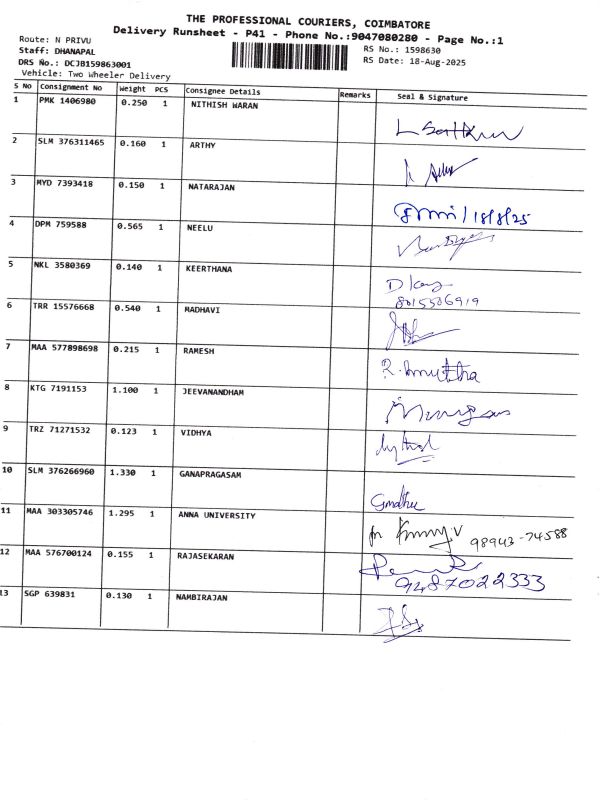 THE PROFESSIONAL COURIERS, COIMBATORE
Delivery Runsheet - P41 - Phone No.:9047080280 - Page No.:1
Route: N PRIVU
RS No.: 1598630
Staff: DHANAPAL
RS Date: 18-Aug-2025
DRS No.: DCJB159863001
Vehicle: Two Wheeler Delivery
S No Consignment No Weight PCS Consignee Details Remarks Seal & Signature
1 PMK 1406980 0.250 1 NITHISH WARAN
2 SLM 376311465 0.160 1 ARTHY
3 MYD 7393418 0.150 1 NATARAJAN
18/8/25
4 DPM 759588 0.565 1 NEELU
5 NKL 3580369 0.140 1 KEERTHANA
8015506919
6 TRR 15576668 0.540 1 MADHAVI
7 MAA 577898698 0.215 1 RAMESH
R. Amuttha
8 KTG 7191153 1.100 1 JEEVANANDHAM
Murugan
9 TRZ 71271532 0.123 1 VIDHYA
10 SLM 376266960 1.330 1 GANAPRAGASAM
11 MAA 303305746 1.295 1 ANNA UNIVERSITY
98943-74588
12 MAA 576700124 0.155 1 RAJASEKARAN
9487022333
13 SGP 639831 0.130 1 NAMBIRAJAN